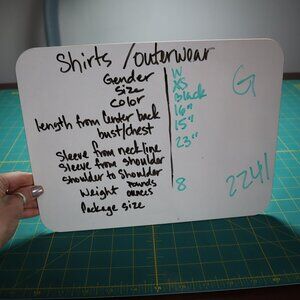 Shirts / outerwear
Gender W
Size XS
Color Black
Length from center back 16"
bust/chest 15"
23"
Sleeve from neckline
Sleeve from shoulder
shoulder to shoulder
Weight pounds
ounces 8
Package size
G
2241